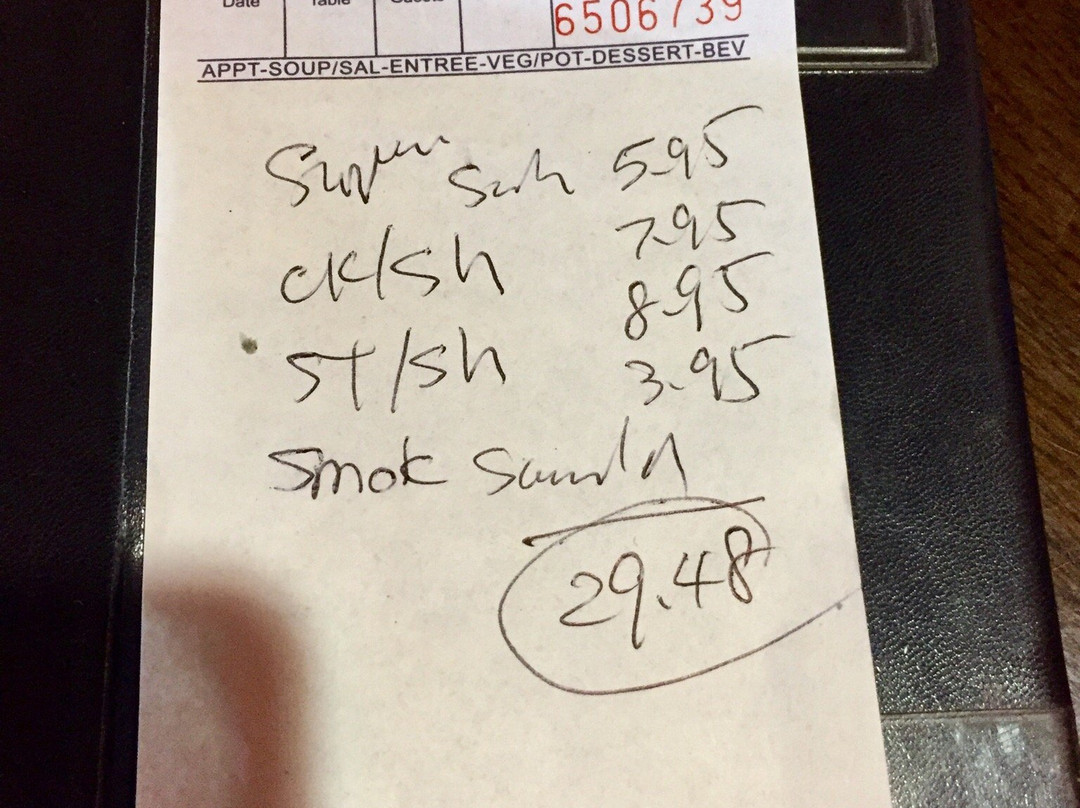 Date Table Guests
6506739
APPT-SOUP/SAL-ENTREE-VEG/POT-DESSERT-BEV
5.95
CK/Sh 7.95
ST/Sh 8.95
Smok 3.95
29.48